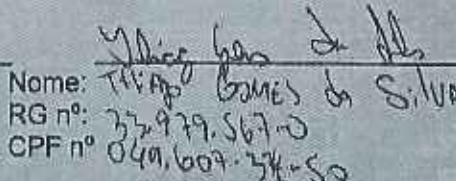 Nome: Thiago Gomes da Silva
RG nº: 33.979.567-0
CPF nº 049.607.